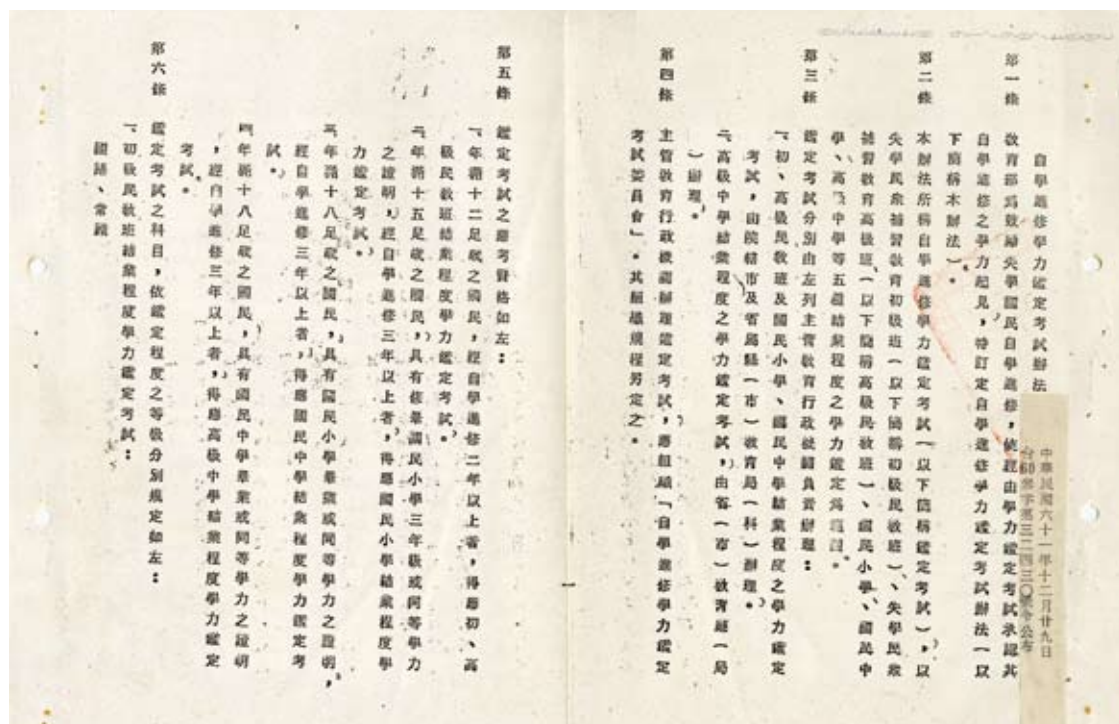 自學進修學力鑑定考試辦法
中華民國六十一年十二月廿九日
台60參字第三二四三〇號令公布
第一條 教育部為鼓勵失學國民自學進修,使經由學力鑑定考試承認其
自學進修之學力起見,特訂定自學進修學力鑑定考試辦法(以
下簡稱本辦法)。
第二條 本辦法所稱自學進修學力鑑定考試(以下簡稱鑑定考試),以
失學民眾補習教育初級班(以下簡稱初級民教班)、失學民眾
補習教育高級班、(以下簡稱高級民教班)、國民小學、國民中
學、高級中學等五種結業程度之學力鑑定為範圍。
第三條 鑑定考試分別由左列主管教育行政機關負責辦理:
一、初、高級民教班及國民小學、國民中學結業程度之學力鑑定
考試,由院轄市及省屬縣(市)教育局(科)辦理。
二、高級中學結業程度之學力鑑定考試,由省(市)教育廳(局
)辦理。
第四條 主管教育行政機關辦理鑑定考試,應組織「自學進修學力鑑定
考試委員會」。其組織規程另定之。
第五條 鑑定考試之應考資格如左:
一、年滿十二足歲之國民,經自學進修二年以上者,得應初、高
級民教班結業程度學力鑑定考試。
二、年滿十五足歲之國民,具有修畢國民小學三年級或同等學力
之證明,經自學進修三年以上者,得應國民小學結業程度學
力鑑定考試。
三、年滿十八足歲之國民,具有國民小學畢業或同等學力之證明,
經自學進修三年以上者,得應國民中學結業程度學力鑑定考
試。
四、年滿十八足歲之國民,具有國民中學畢業或同等學力之證明
,經自學進修三年以上者,得應高級中學結業程度學力鑑定
考試。
第六條 鑑定考試之科目,依鑑定程度之等級分別規定如左:
一、初級民教班結業程度學力鑑定考試:
國語、常識